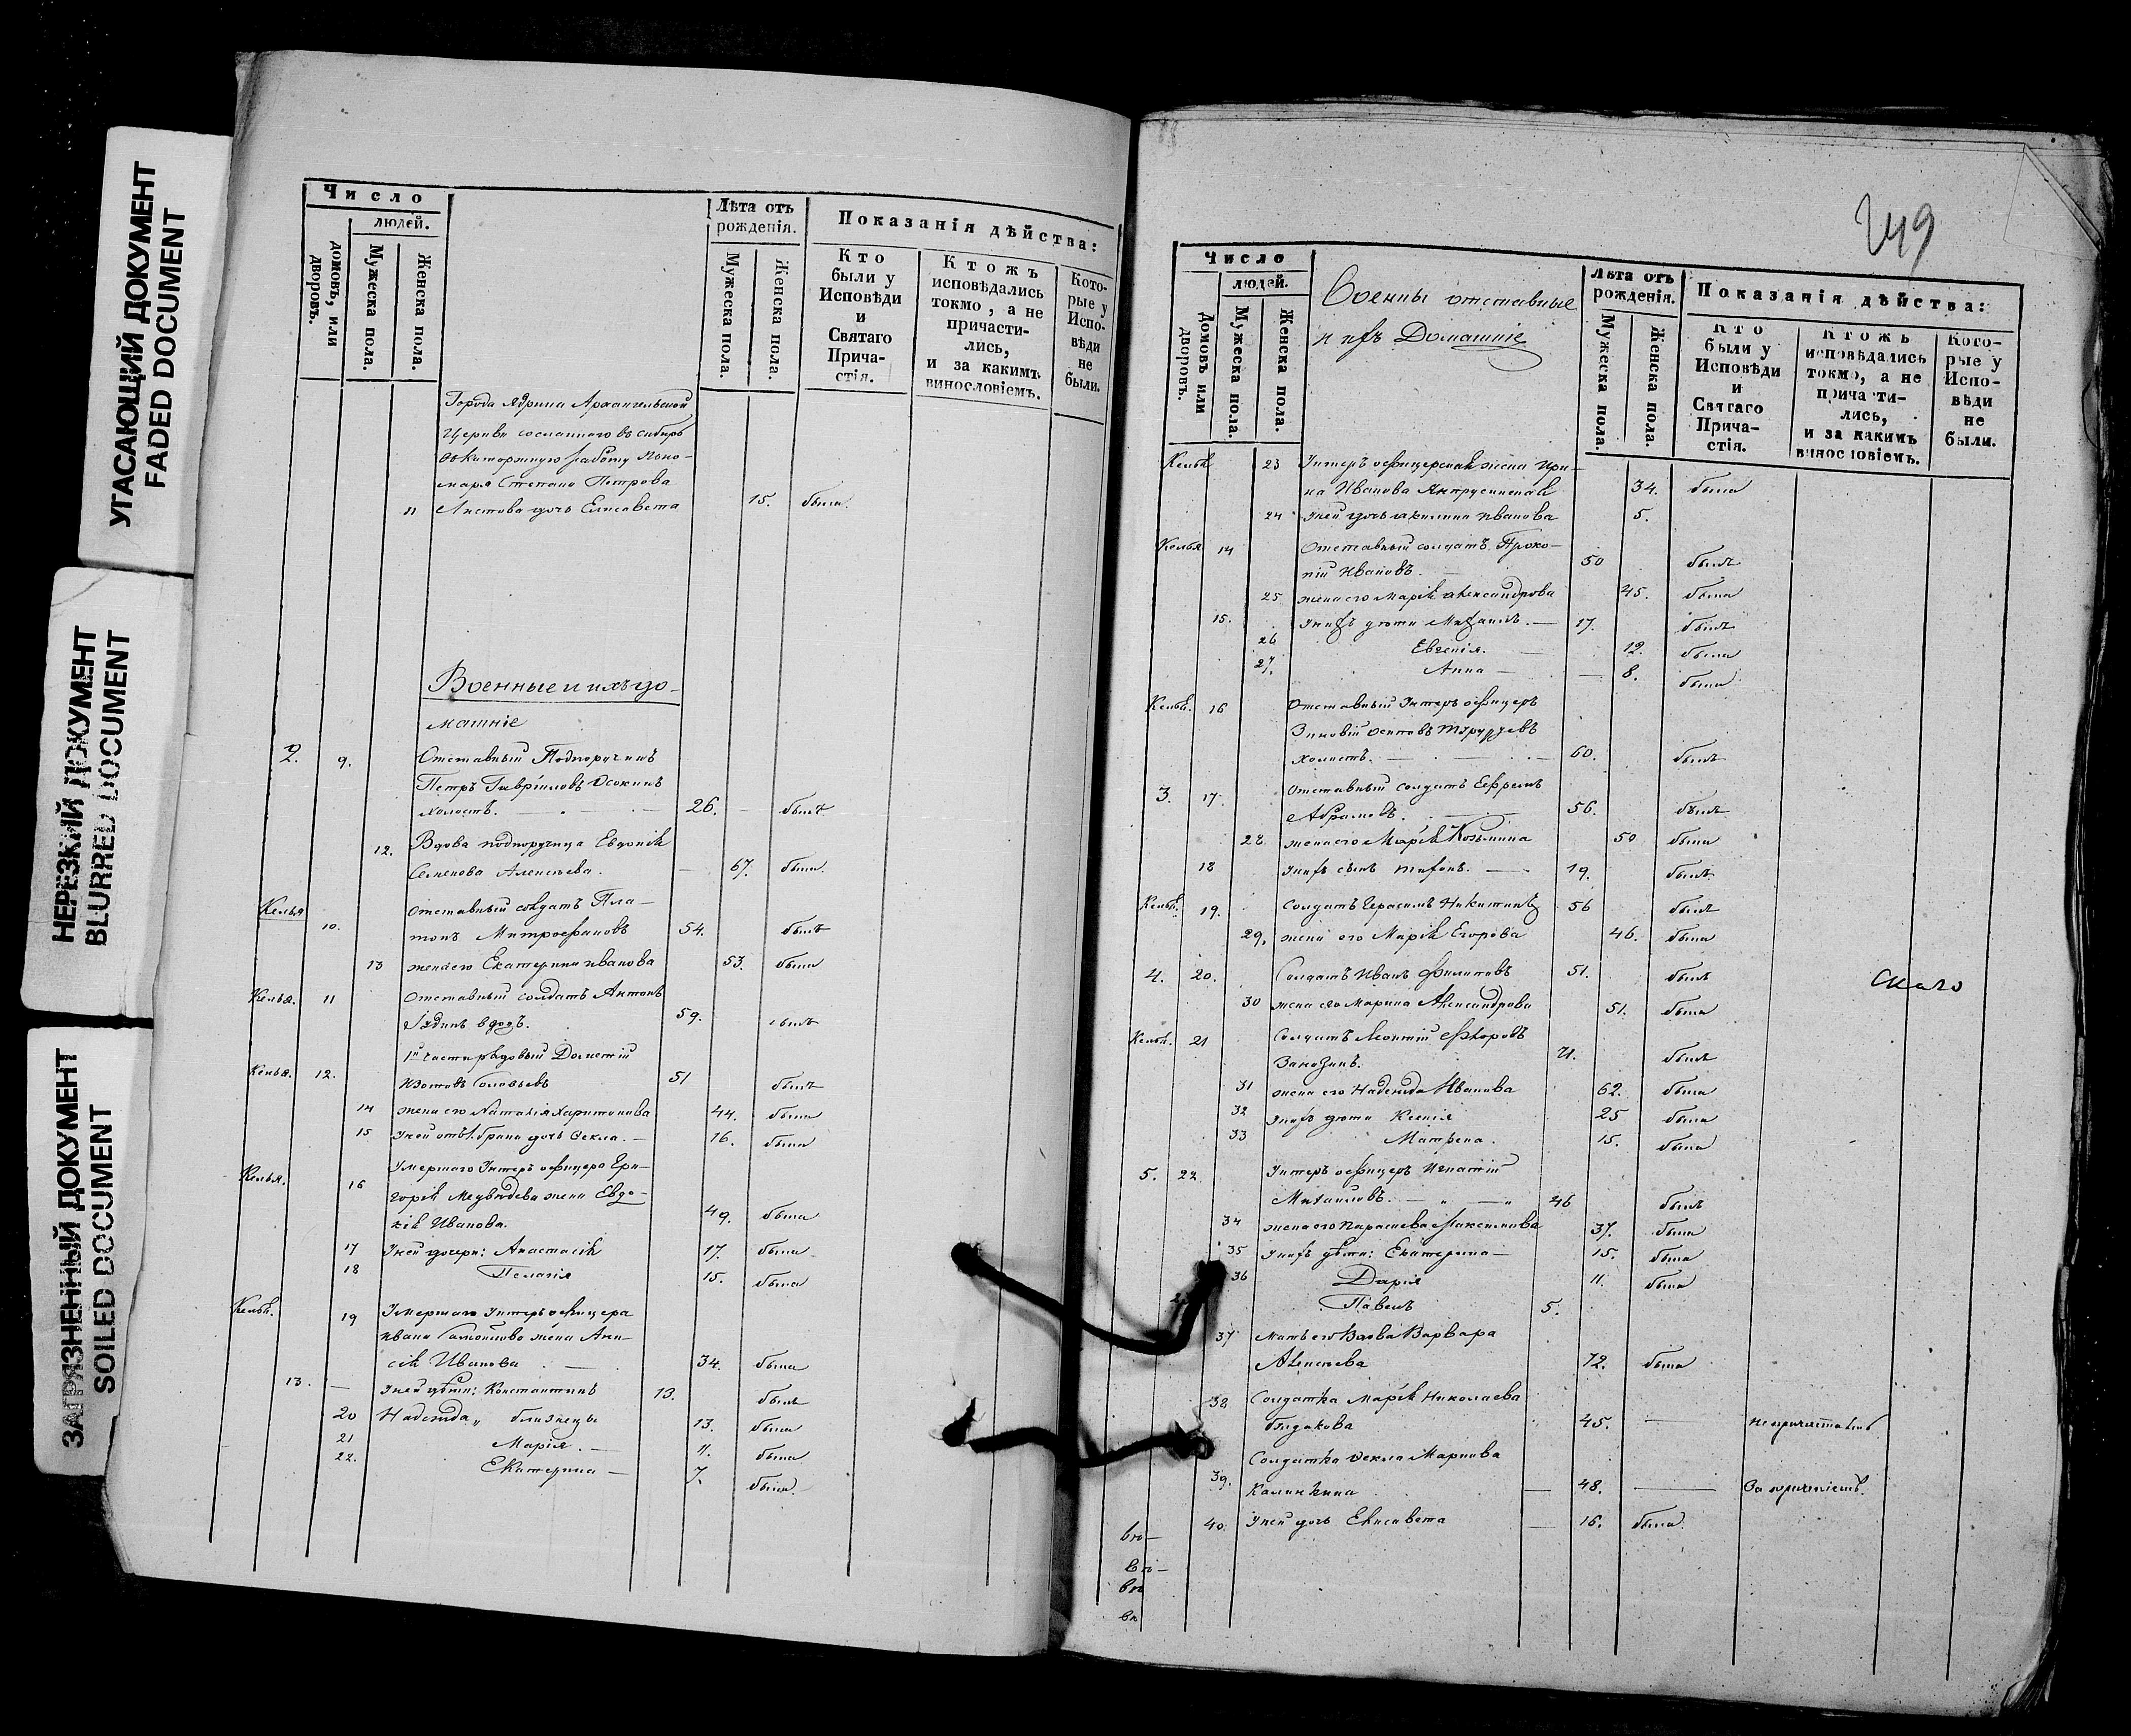 УГАСАЮЩИЙ ДОКУМЕНТ
FADED DOCUMENT
НЕРЕЗКИЙ ДОКУМЕНТ
BLURRED DOCUMENT
ЗАГРЯЗНЕННЫЙ ДОКУМЕНТ
SOILED DOCUMENT
Число
людей.
домовъ, или дворовъ.
Мужеска пола.
Женска пола.
Лѣта отъ рожденія.
Мужеска пола.
Женска пола.
Показанія дѣйства:
Кто были у Исповѣди и Святаго Прича- стія.
Ктожъ исповѣдались токмо, а не причасти- лись, и за какимъ винословіемъ.
Кото- рые у Испо- вѣди не были.
Города Ядрина Архангельской
Церкви сосланного въ сибирь
въ каторжную работу Поно-
маря Степана Петрова
11 Листова дочь Елисавета 15. была.
Военные и ихъ до-
машніе
2. 9. Отставный Подпоручикъ
Петръ Гавріиловъ Осокинъ
холостъ. 26. былъ
12. Вдова подпоручица Евдокія
Семенова Алексѣева. 67. была.
Келья 10. Отставный солдатъ Пла-
тонъ Митрофановъ 54. былъ
13 жена его Екатерина Иванова 53. была
Келья. 11 Отставный солдатъ Антонъ
вдовъ. 59. былъ
Келья. 12. Изотовъ Соловьевъ 51 былъ
14 жена его Наталія Харитонова 44. была
15 У ней отъ 1. брака дочь Ѳекла. 16. была
Келья. Умершаго Унтеръ офицера Гри-
16 горія Медвѣдева жена Евдо-
кія Иванова. 49. была
17 У ней дочери: Анастасія 17. была
18 Пелагія 15. была
Келья. 19 Умершаго Унтеръ офицера
Ивана жена Ани-
сія Иванова 34. была
13. У ней дѣти: Константинъ 13. былъ
20 Надежда „ близнецы 13. была
21 Марія. 11. была
22. Екатерина 7. была.
249
Число
людей.
Домовъ или дворовъ.
Мужеска пола.
Женска пола.
Военны отставные
и ихъ Домашніе
Лѣта отъ рожденія.
Мужеска пола.
Женска пола.
Показанія дѣйства:
Кто были у Исповѣди и Святаго Прича- стія.
Ктожъ исповѣдались токмо, а не прича ти- лись, и за какимъ винословіемъ.
Кото- рые у Испо- вѣди не были.
Келья 23 Унтеръ офицерская жена Ири-
на Иванова 34. была
24 У ней дочь Акилина Иванова 5.
Келья 14 Отставный солдатъ Проко-
пій Ивановъ. 50 былъ
25 жена его Марія Александрова 45. была
15. У нихъ дѣти Михаилъ. 17. былъ
26 Евгенія. 12. была
27. Анна 8. была
Келья. 16 Отставный Унтеръ офицеръ
Зиновій Осиповъ
холостъ. 60. былъ
3. 17. Отставный солдатъ Ефремъ
Абрамовъ. 56. былъ
28 жена его Марія Козьмина 50 была
18 У нихъ сынъ Тихонъ. 19. былъ
Келья. 19. Солдатъ Герасимъ Никитинъ 56 былъ
29. жена его Марія Егорова 46. была
4. 20. Солдатъ Иванъ Филиповъ 51. былъ
30 жена его Марина Александрова 51. была
Келья. 21 Солдатъ Леонтій Ѳедоровъ
71. былъ
31 жена его Надежда Иванова 62. была
32 У нихъ дѣти Ксенія 25 была
33 Матрена. 15. была
5. 22 Унтеръ офицеръ Игнатій
Михайловъ. 46 былъ
34 жена его Парасκева Максимова 37. была
35 У нихъ дѣти: Екатерина 15. была
36 Дарія 11. была
Павелъ 5.
37 Мать его Вдова Варвара
Алексѣева 72. была
38 Солдатка Марія Николаева
45.
Солдатка Ѳекла Маркова
39. Калинкина 48.
40. У ней дочь Елисавета 16. была.